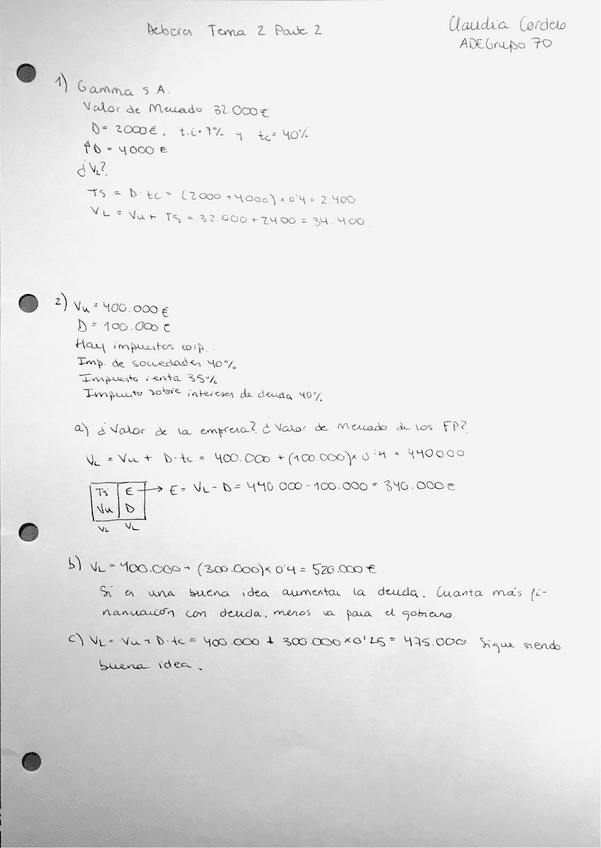 Deberes Tema 2 Parte 2
Claudia Cordero
ADE Grupo 70
1) Gamma S.A.
Valor de Mercado 32.000€
D = 2000€, t.i = 7% y tc = 40%
↑D = 4000 €
¿VL?
TS = D · tc = (2000 + 4000) × 0'4 = 2400
VL = Vu + TS = 32.000 + 2400 = 34.400
2) Vu = 400.000€
D = 100.000€
Hay impuestos corp.
Imp. de sociedades 40%
Impuesto renta 35%
Impuesto sobre intereses de deuda 40%
a) ¿Valor de la empresa? ¿Valor de Mercado de los FP?
VL = Vu + D · tc = 400.000 + (100.000) × 0'4 = 440000
Ts E → E = VL - D = 440.000 - 100.000 = 340.000€
Vu D
VL VL
b) VL = 400.000 + (300.000) × 0'4 = 520.000€
Si es una buena idea aumentar la deuda. Cuanta más fi-
nanciación con deuda, menos va para el gobierno.
c) VL = Vu + D · tc = 400.000 + 300.000 × 0'25 = 475.000 Sigue siendo
buena idea.